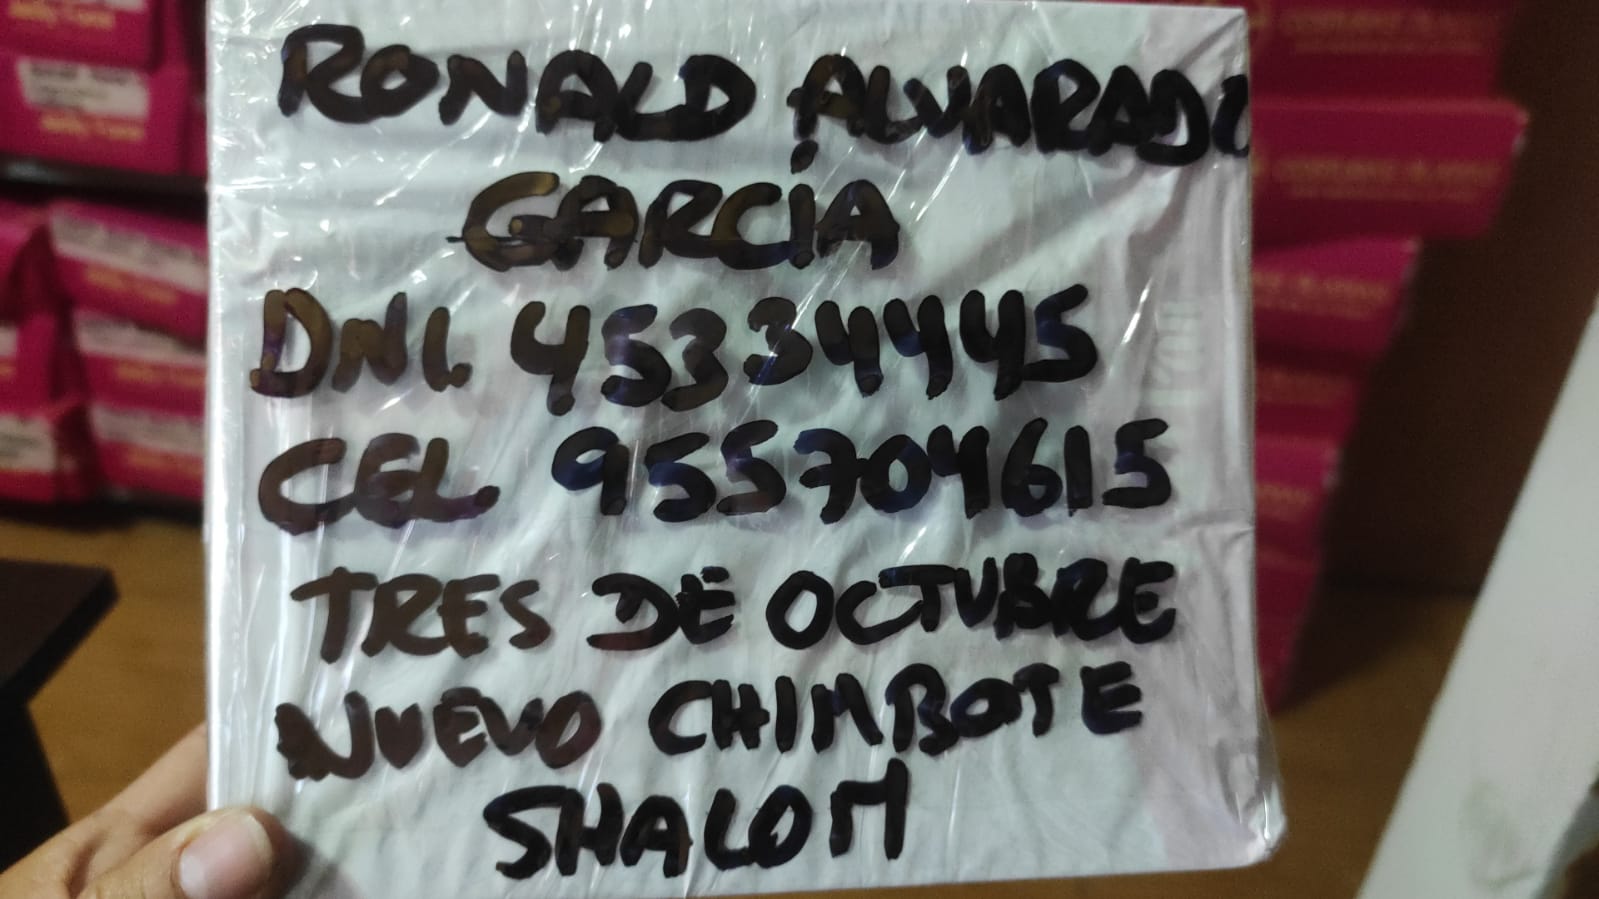 RONALD ALVARADO
GARCÍA
DNI. 45334445
CEL. 955704615
TRES DE OCTUBRE
NUEVO CHIMBOTE
SHALOM